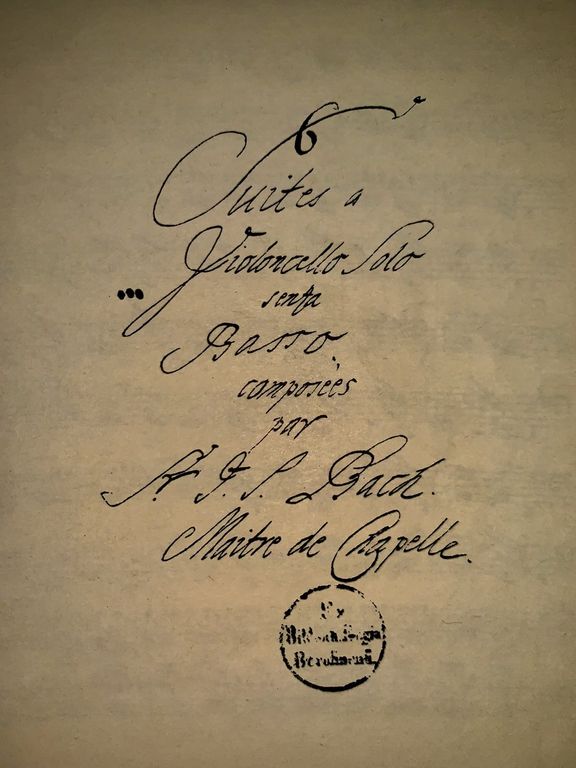 6
Suites a
Violoncello Solo
senza
Basso.
composées
par
Sr. J. S. Bach.
Maitre de Chapelle.
Ex
Biblioth. Regia
Berolinenſi